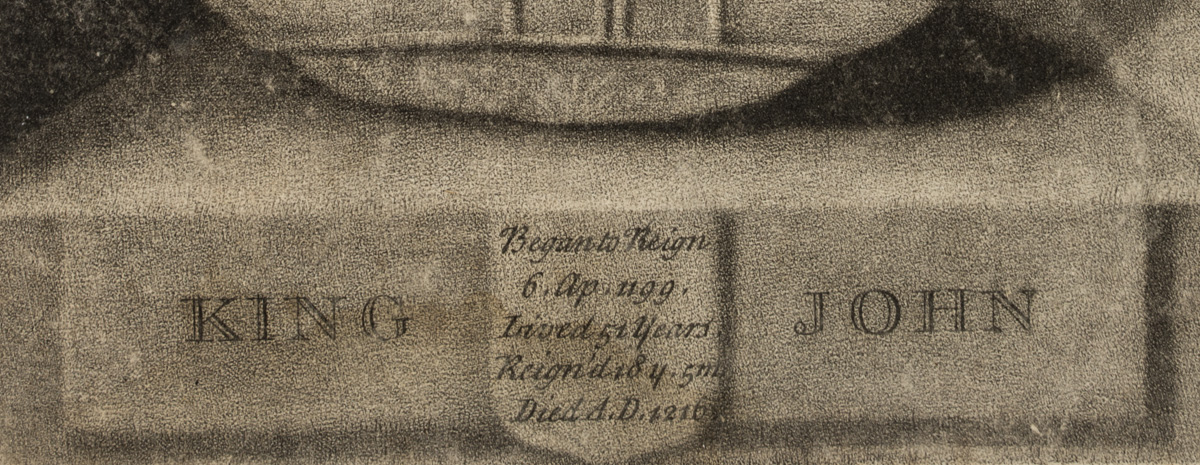 KING
Began to Reign
6. Ap. 1199.
Lived 51 Years
Reign'd 18 y. 5m
Died A.D. 1216
JOHN